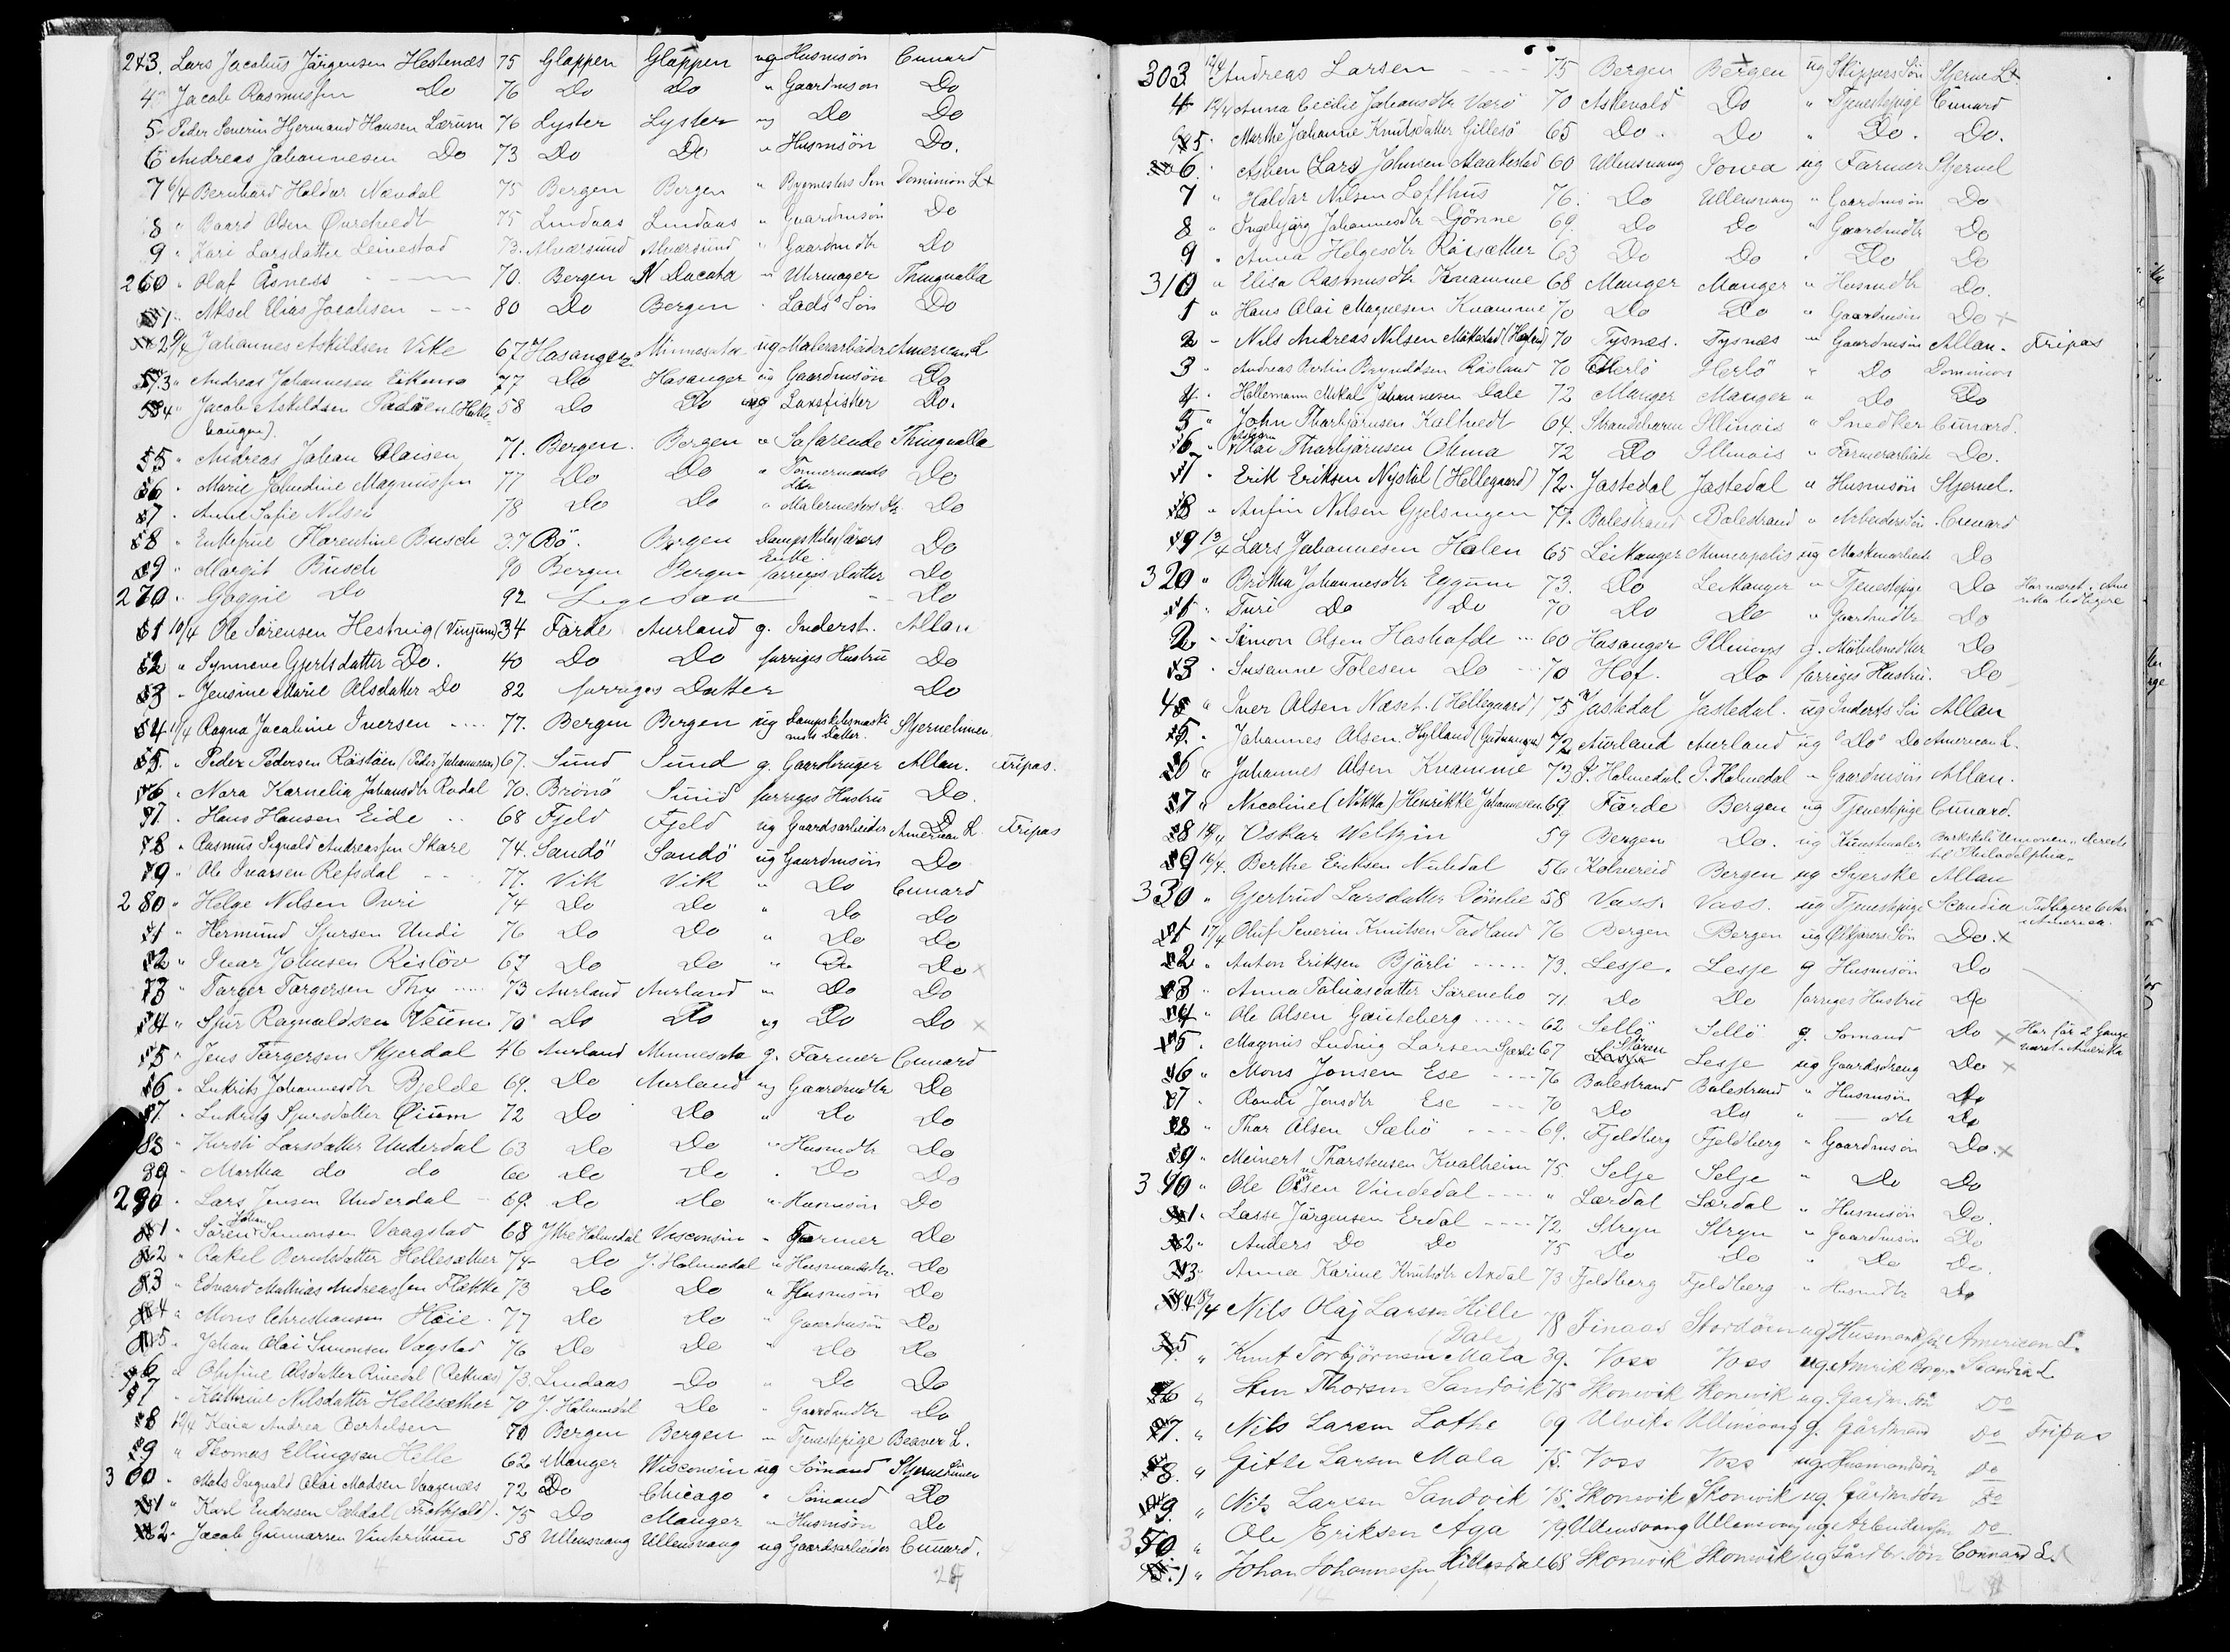 243. Lars Jacobus Jörgensen Hestenes 75 Gloppen Gloppen ug Husmsön Cunard
4 Jacob Rasmussen Do 76 Do Do " Gaardmsön Do
5 Peder Severin Hjermand Hansen Lærum 76 Lyster Lyster ug Do Do
6 Andreas Johannesen Do 73 Do Do " Husmsön Do.
7 6/4 Bernhard Haldar Nændal 75 Bergen Bergen " Bygmesters Sön Dominion L
8 " Baard Olsen 75 Lindaas Lindaas " Gaardmsön Do
9 " Kari Larsdatter Leinestad 73. Alversund Alversund " Gaardmdtr Do
260 " Olaf Åsness 70. Bergen N Dacota " Uhrmager Thingvalla
1 " Aksel Elias Jacobsen 80 Do Bergen " Lods's Sön Do
2 9/4 Johannes Askildsen Vike 67 Hosanger Minnesota ug Malerarbeider American L
3 " Andreas Johannesen Eikemo 77 Do Hosanger ug Gaardmsön Do
4 " Jacob Askildsen 58 Do Do ug Laxefisker Do.
haugen)
5 " Andreas Johan Olaisen 71. Bergen. Bergen " Söfarende Thingvalla
6 " Marie Magnussen 77 Do Do " Tömmermands Dtr Do
7 " Anne Sofie Nilsen 78 Do Do " Malermesters Dtr Do
8 " Enkefrue Florentine Busch 37 Bö. Bergen Dampskibsförers Enke Do
9 " Margit Busch 90 Bergen Bergen forriges Datter Do
270 " Goggie Do 92 Ligesaa Do
1 10/4 Ole Sörensen Hestvig (Vinjum) 34 Förde Aurland g. Inderst. Allan
2 " Synneve Gjertsdatter Do. 40 Do Do forriges Hustru Do
3 " Jensine Marie Olsdatter Do 82 forriges Datter Do
4 11/4 Ragna Jacobine Iversen 77. Bergen Bergen ug Dampskibsmaskinists Datter. Stjernelinien
5 " Peder Pedersen Röstöen (Peder Johannesen) 67. Sund Sund g. Gaardbruger Allan. Fripas.
6 " Nora Kornelia Johansdtr Rodal 70. Brönö Sund forriges Hustru Do.
7 " Hans Hansen Eide 68 Fjeld Fjeld ug Gaardsarbeider American L. Fripas
78 " Rasmus Sigvald Andreassen Skare 74. Sandö Sandö ug Gaardmsön Do
9 " Ole Ivarsen Refsdal 77. Vik Vik " Do Cunard
280 " Helge Nilsen Övri 74 Do Do " Do Do
1 " Hermund Sjursen Undi 76 Do Do " Do Do
2 " Ivar Johnsen Rislöv 67 Do Do " Do Do
3 " Torger Torgersen Thy 73 Aurland Aurland " Do Do
4 " Sjur Ragnvaldsen Veum 70 Do Do ug Do Do
5 " Jens Torgersen Skjerdal 46 Aurland Minnesota g. Farmer Cunard
6 " Lukrits Johannesdtr Bjelde 69. Do Aurland ug Gaardmdtr Do
7 " Lukrits Sjursdatter Öium 72 Do Do " Do Do
88 " Kirsti Larsdatter Underdal 63 Do Do " Husmdtr Do
89 " Martha do do 60 Do Do " Do Do
290 " Lars Jensen Underdal 69. Do Do " Husmsön Do
1 " Sören Johan Simonsen Vaagstad 68 Ytre Holmedal Wisconsin " Farmer Do
2 " Rakel Berntsdatter Hellesæther 74 Do Y. Holmedal " Husmandsdtr. Do
3 " Edvard Mathias Andreassen Flekke 73 Do Do " Husmsön Do
4 " Mons Christiansen Höie 77 Do Do " Gaardmsön Do
5 " Johan Olai Simonsen Vagstad 76 Do Do " Do Do
6 " Olufine Olsdatter Rinedal 73. Lindaas Do " Do Do
7 " Kathrine Nilsdatter Hellesæther 70 Y. Holmedal Do " Gaardmdtr Do
8 12/4 Kaia Andrea Bertelsen 70 Bergen Bergen " Tjenestepige Beaver L.
9 " Thomas Ellingsen Helle 62 Manger Wisconsin ug Sömand Stjernelinien
300 " Mats Sigvald Olai Madsen Vaagenes 72 Do Chicago " Sömand Do
1 " Karl Endresen Sældal 75 Do Manger " Husmsön Do
2 " Jacob Gunnarsen Vinterthun 58 Ullensvang Ullensvang ug Gaardsarbeider Cunard.
303 12/4 Andreas Larsen 75 Bergen Bergen ug Skippers Sön Stjerne L.
4 12/4 Anna Cecilie Johansdtr Værö 70 Askevold Do " Tjenestepige Cunard
5 " Marthe Johanne Knutsdatter Gillesö 65 Do. Do " Do. Do.
6 " Asben (Lars) Johnsen Maakestad 60 Ullensvang Iowa ug Farmer Stjernel
7 " Haldor Nilsen Lofthus 76. Do Ullensvang " Gaardmsön Do
8 " Ingebjörg Johannesdtr Djönne 69. Do Do " Gaardmdtr Do
9 " Anna Helgesdtr Röisæther 63 Do Do " Do Do
310 " Elisa Rasmusdtr Kvamme 68 Manger Manger " Husmdtr Do.
1 " Hans Olai Magnesen Kvamme 70 Do Do " Gaardmsön Do
2 " Nils Andreas Nilsen Mökestad 70 Tysnæs. Tysnæs " Gaardmsön Allan. Fripas
3 " Andreas Bertin Brynildsen Rösland 70 Herlö Herlö " Do Dominion
4 " Hallemann Mikal Johannesen Dale 72 Manger Manger " Do Do
5 " John Thorbjörnsen Kaltvedt 64. Strandebarm Illinois " Snedker Cunard.
6 " Olai Thorbjörnsen Oma 72 Do Illinois " Farmerarbeide Do.
7 " Erik Eriksen Nystöl (Hellegaard) 72. Jostedal Jostedal " Husmsön Stjernel.
8 " Anfin Nilsen Gjelsvingen 77. Balestrand Balestrand " Arbeiders Sön. Cunard
9 13/4 Lars Johannesen Holen 65 Leikanger Minneapolis ug Maskinarbeide Do
320 " Britha Johannesdtr Eggum 73. Do Leikanger " Tjenestepige Do Har været i Amerika tidligere
1 " Turi Do Do 70 Do Do " Gaardmdtr Do
2 " Simon Olsen Hoshofde 60 Hosanger Illinois g. Möbelsnedker Do
3 " Susanne Tolesen Do 70 Hof. Do forriges Hustru. Do
4 " Iver Olsen Næset. (Hellegaard) 75 Jostedal Jostedal. ug Indersts Sön Allan
5 " Johannes Olsen Hylland 72 Aurland Aurland ug Do Do American L.
6 " Johannes Olsen Kvamme 73 I. Holmedal I. Holmedal " Gaardmsön Allan.
7 " Nicoline (Nikka) Henrikke Johannesen 69. Förde Bergen ug Tjenestepige Cunard.
8 14/4 Oskar Weltzin 59 Bergen Do. ug Kunstmaler Barkskib Unionen, derecte til Philadelphia.
9 16/4. Berthe Eriksen Nubdal 56 Kolvereid Bergen ug Syerske Allan
330 " Gjertrud Larsdatter Dömbe 58 Voss. Voss. ug Tjenestepige Scandia Tidligere 6 Aar i America.
1 17/4 Oluf Severin Knutsen Tadland 76 Bergen Bergen ug Ölkjörers Sön Do.
2 " Anton Eriksen Björli 73. Lesje. Lesje g Husmsön Do
3 " Anna Tobiasdatter Sörenebo 71. Do Do forriges Hustru Do
4 " Ole Olsen Gauteberg 62 Sellö Sellö g. Sömand Do Har för 2 Gange været i Amerika
5 " Magnus Ludvig Larsen 67 Stören Lesje ug Gaardsdreng Do
6 " Mons Jonsen Ese 76 Balestrand Balestrand " Husmsön Do
7 " Randi Jonsdtr Ese 70 Do Do " dtr Do
8 " Thor Olsen Sæbö 69. Fjeldberg Fjeldberg " Gaardmsön Do.
9 " Meinert Thorstensen Kvalheim 75. Selje Selje " Do Do
340 " Ole Olsen Vindedal " Lærdal Lærdal " Husmsön Do.
1 " Lasse Jörgensen Erdal 72. Stryn Stryn " Gaardmsön Do
2 " Anders Do Do 75 Do Do " Do Do.
3 " Anna Karine Knutsdtr Axdal 73 Fjeldberg Fjeldberg " Husmdtr Do
4 18/4 Nils Olaj Larsen Hille 78 Finaas Stordöen ug Husmandssön American L.
(Dale)
5 " Knut Torbjörnsen Mala 39. Voss Voss ug. Amrik Borger Scandia L
6 " Sten Thorsen Sandvik 75 Skonevik Skonevik ug. Gardm. Sön Do
7. " Nils Larsen Lothe 69 Ulvik Ullensvang g. Gårdmand Do Fripas
8. " Gitle Larsen Mala 75. Voss Voss ug. Husmandsön Do
9. " Nils Larsen Sandvik 75. Skonevik Skonevik ug. Gårdm Sön Do
350 " Ole Eriksen Aga 79 Ullensvang Ullensvang ug. Arbeidersön Do
1 " Johan Johannessen Hillesdal 68 Skonevik Skonevik ug. Gårdbr. Sön Connard L.